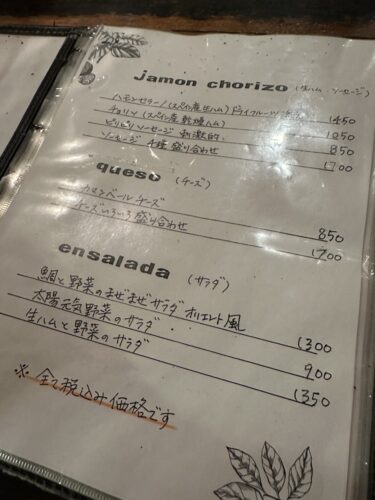 Jamon chorizo (生ハム・ソーセージ)
ハモンセラーノ(スペイン産生ハム)ドライフルーツ 1450
チョリソ(スペイン産乾燥ハム) 1050
ピリピリソーセージ 刺激的。 850
ソーセージ 4種盛り合わせ 1700
queso (チーズ)
カマンベールチーズ 850
チーズいろいろ盛り合わせ 1700
ensalada (サラダ)
鯛と野菜のまぜまぜサラダ オリエント風 1300
太陽元気野菜のサラダ . 900
生ハムと野菜のサラダ 1350
※ 全て税込み価格です